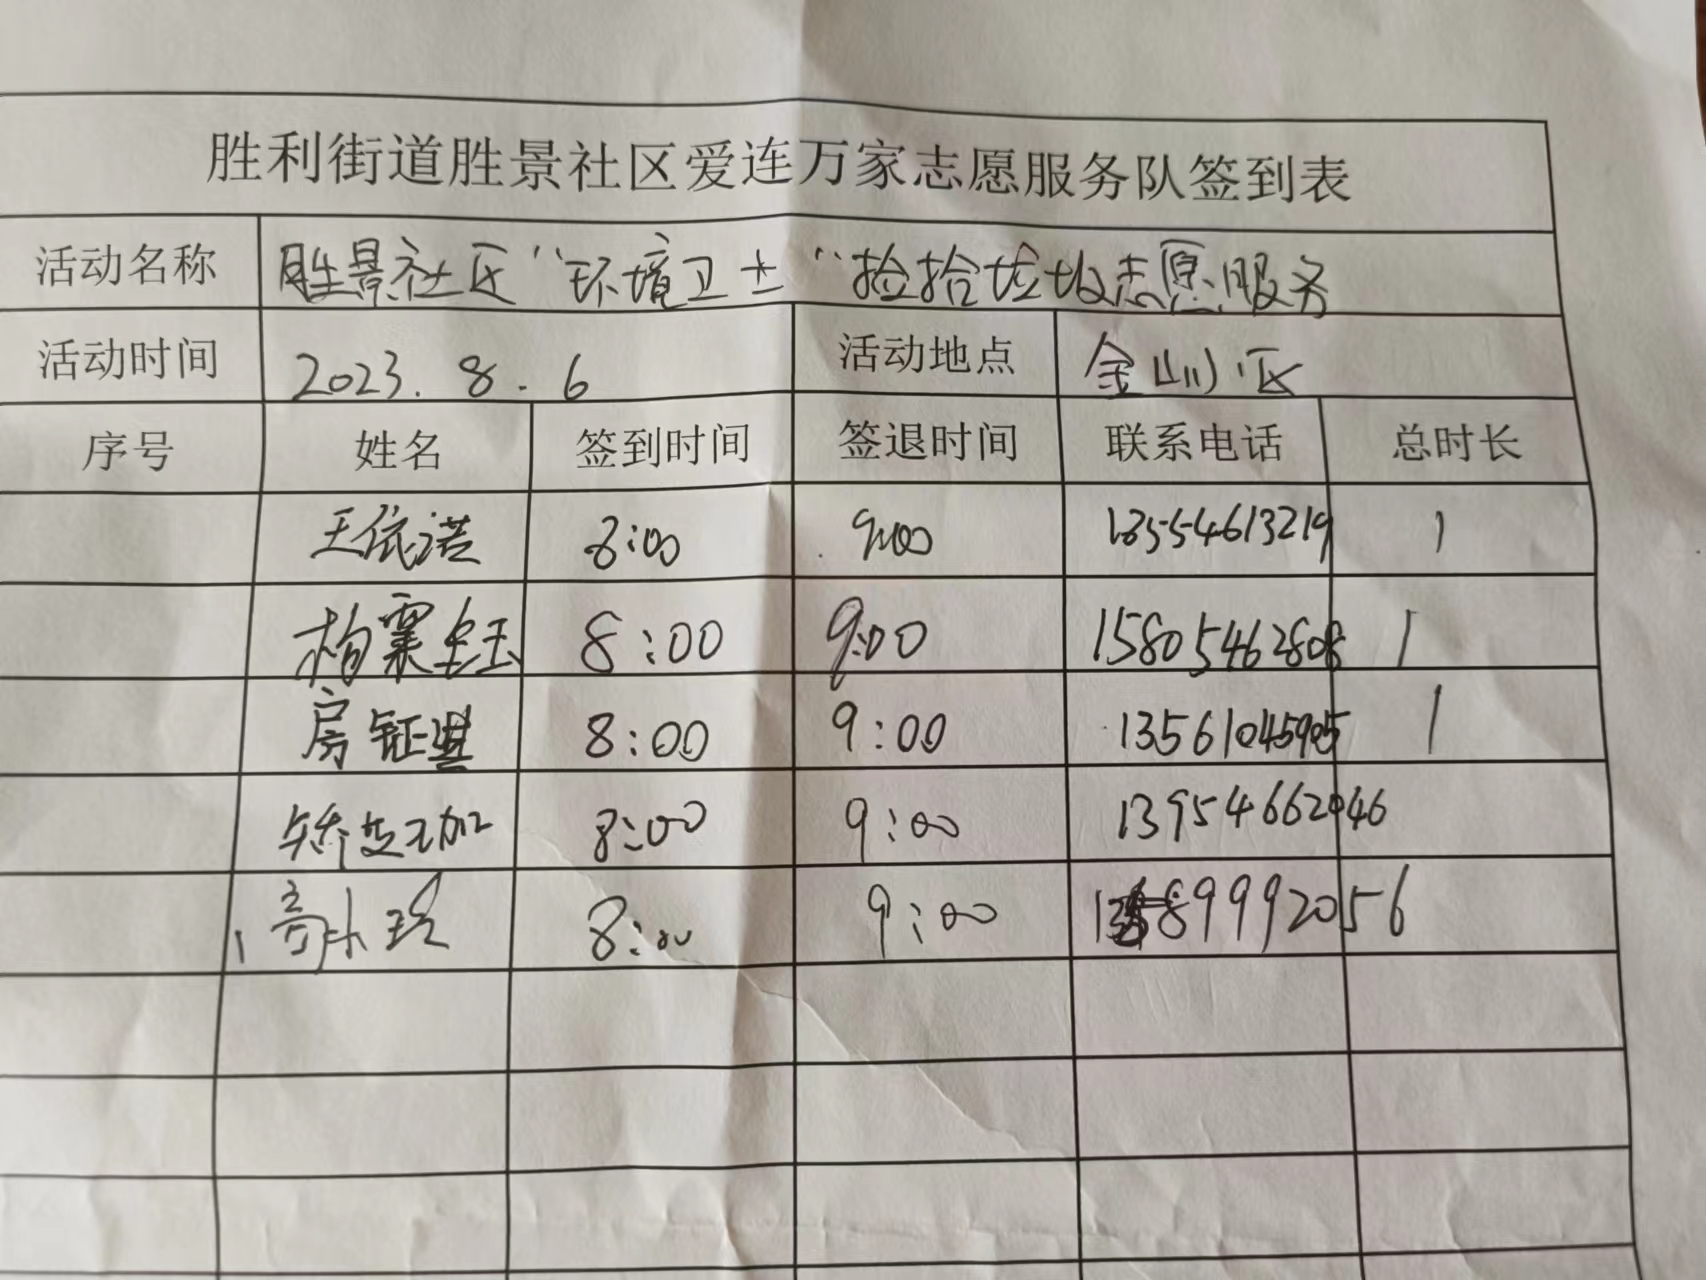 胜利街道胜景社区爱连万家志愿服务队签到表
活动名称 胜景社区“环境卫士“捡拾垃圾志愿服务
活动时间 2023.8.6 活动地点 金山小区
序号 姓名 签到时间 签退时间 联系电话 总时长
王依诺 8:00 9:00 13554613219 1
8:00 9:00 15805462808 1
房钲淇 8:00 9:00 13561045905 1
8:00 9:00 13954662046
8:00 9:00